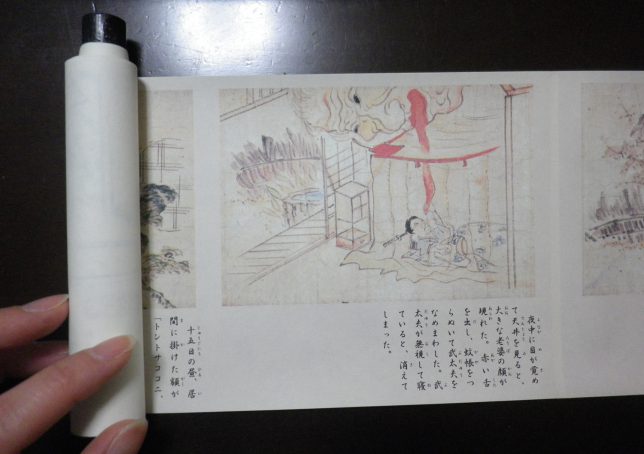 夜中に目が覚め
て天井を見ると、
大きな老婆の顔が
現れた。赤い舌
を出し、蚊帳をつ
らぬいて武太夫を
なめまわした。武
太夫が無視して寝
ていると、消えて
しまった。
十五日の昼、居
間に掛けた額が
「トントサココニ、